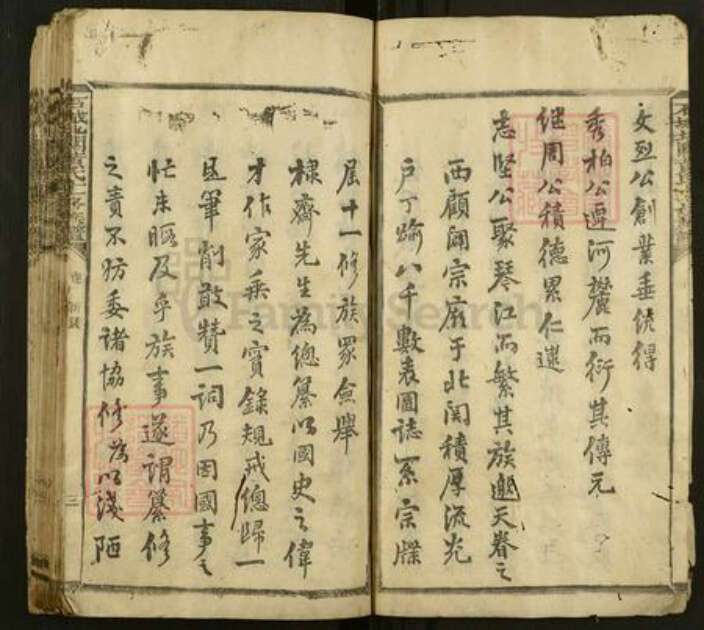 文烈公創業垂統得
秀柏公遷河灣而衍其傳元
繼周公積德累仁逮
志堅公聚琴江而繁其族邀天眷之
西顧闢宗廟于北關積厚流光
戶丁踰八千數表圖誌系宗牒
屆十一修族眾僉舉
棣齋先生為總纂以國史之偉
才作家乘之實錄規戒總歸一
是筆削敢贊一詞乃因國事之
忙未暇及乎族事遂謂纂修
之責不妨委諸協修為以淺陋
三
FamilySearch